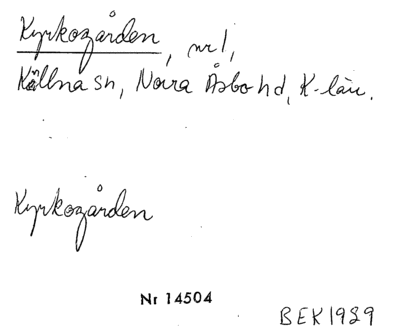 Kyrkogården, nr 1,
Källna sn, Norra Åsbo hd, K-län.
Kyrkogården
Nr 14504
BEK 1929